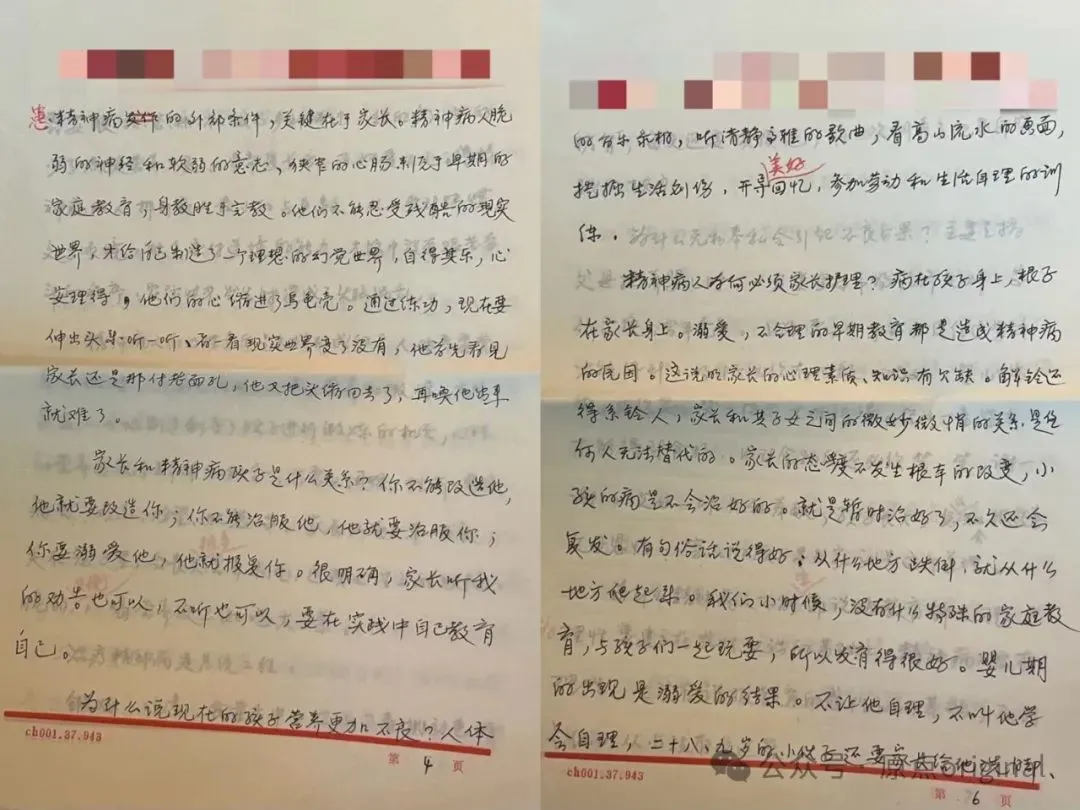 患精神病发作的外部条件，关键在于家长。精神病人脆
弱的神经和软弱的意志、狭窄的心肠来源于早期的
家庭教育，身教胜于言教。他们不能忍受残酷的现实
世界，才给自己制造了一个理想的幻觉世界，自得其乐，心
安理得，他们的心缩进了乌龟壳。通过练功，现在要
伸出头来听一听、看一看现实世界变了没有，他首先看见
家长还是那付老面孔，他又把头缩回去了，再唤他出来
就难了。
家长和精神病孩子是什么关系？你不能改造他，
他就要改造你；你不能治服他，他就要治服你；
你要溺爱他，他就报复你。很明确，家长听我
的劝告也可以，不听也可以，要在实践中自己教育
自己。
为什么说现在的孩子营养更加不良？人体
ch001.37.943
第 4 页
的音乐，听清静高雅的歌曲，看高山流水的画面，
美好
挖掘生活创伤，开导回忆，参加劳动和生活自理的训
练。
精神病人为何必须家长护理？病在孩子身上，根子
在家长身上。溺爱，不合理的早期教育都是造成精神病
的原因。这说明家长的心理素质、知识有欠缺。解铃还
得系铃人，家长和其子女之间的微妙微情的关系是任
何人无法替代的。家长的态度不发生根本的改变，小
孩的病是不会治好的。就是暂时治好了，不久还会
复发。有句俗话说得好：从什么地方跌倒，就从什么
地方爬起来。我们小时候，没有什么特殊的家庭教
育，与孩子们一起玩耍，所以发育得很好。婴儿期
的出现是溺爱的结果。不让他自理，不叫他学
会自理，二十八、九岁的小伙子还要家长给他洗脚、
公众号
ch001.37.943
第 6 页